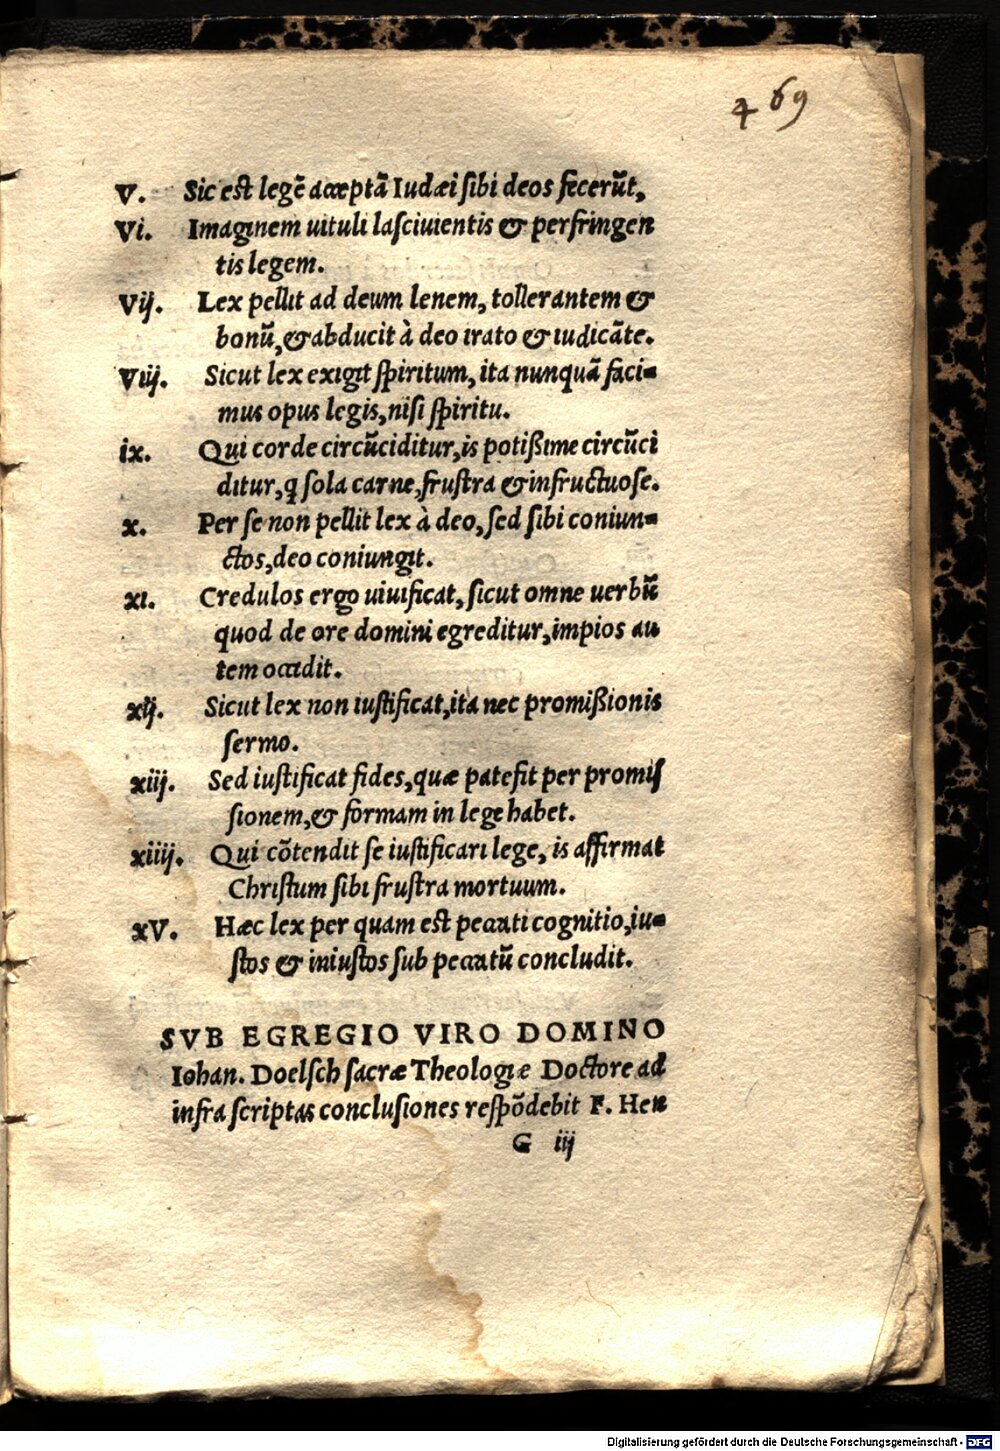 469
V. Sic est legẽ acceptã Iudæi sibi deos fecerũt,
Vi. Imaginem uituli lasciuientis & perfringen
tis legem.
Vij. Lex pellit ad deum lenem, tollerantem &
bonũ, & abducit à deo irato & iudicãte.
Viij. Sicut lex exigit spiritum, ita nunquã faci=
mus opus legis, nisi spiritu.
ix. Qui corde circũciditur, is potißime circũci
ditur, q sola carne, frustra & infructuose.
x. Per se non pellit lex à deo, sed sibi coniun=
ctos, deo coniungit.
xi. Credulos ergo uiuificat, sicut omne uerbũ
quod de ore domini egreditur, impios au
tem occidit.
xij. Sicut lex non iustificat, ita nec promißionis
sermo.
xiij. Sed iustificat fides, quæ patefit per promis
sionem, & formam in lege habet.
xiiij. Qui cõtendit se iustificari lege, is affirmat
Christum sibi frustra mortuum.
xV. Hæc lex per quam est peccati cognitio, iu=
stos & iniustos sub peccatũ concludit.
SVB EGREGIO VIRO DOMINO
Iohan. Doelsch sacræ Theologiæ Doctore ad
infra scriptas conclusiones respõdebit F. Hen
G iij
Digitalisierung gefördert durch die Deutsche Forschungsgemeinschaft - DFG